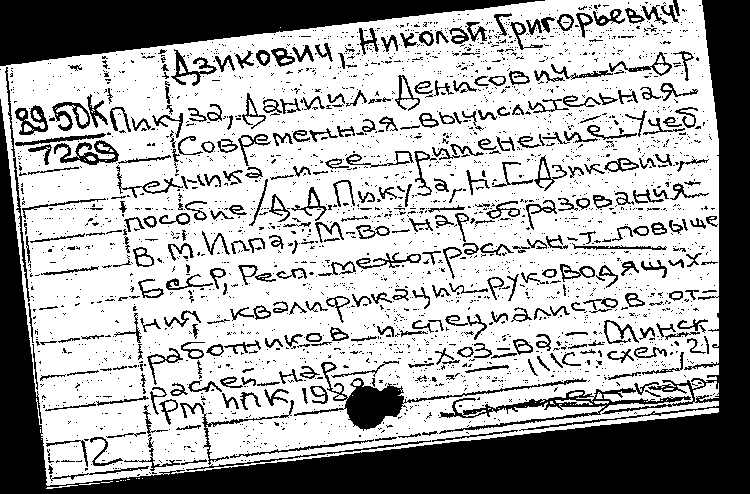 Дзикович, Николай Григорьевич
89-50К
7269
Пикуза, Даниил Денисович и др.
Современная вычислительная
техника и ее применение: Учеб.
пособие / Д.Д. Пикуза, Н.Г. Дзикович,
В.М. Иппа; М-во нар. образования
БССР, Респ. межотрасл. ин-т повыше
ния квалификации руководящих
работников и специалистов от
раслей нар. хоз-ва. — Минск
РМ ИПК, 198 111 с.: схем.; 21
След. карт
12